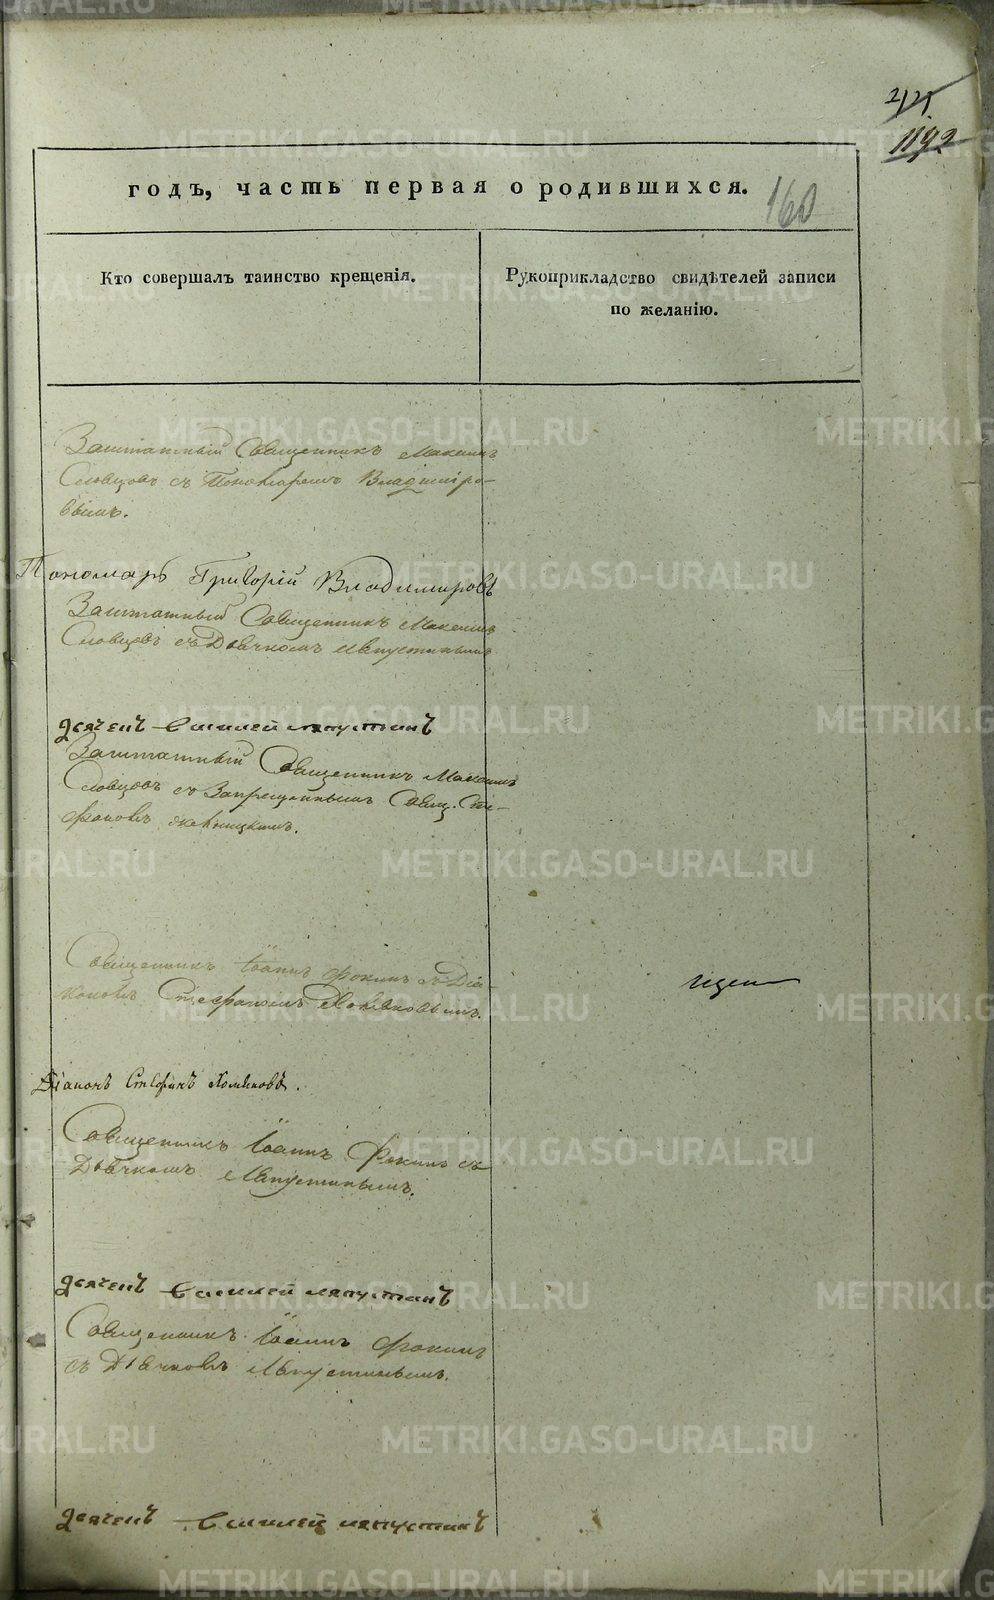 2121
1192
годъ, часть первая о родившихся.
160
Кто совершалъ таинство крещенія.
Рукоприкладство свидѣтелей записи
по желанію.
Заштатный Священникъ Максимъ
Словцовъ съ Пономаремъ Владиміро-
вымъ.
Пономарь Григорій Владимировъ
Заштатный Священникъ Максимъ
Словцовъ съ Дьячкомъ Ляпустинымъ
дьячекъ Василей ляпустинъ
Заштатный Священникъ Максимъ
Словцовъ съ Запрещеннымъ Свящ. Сте-
фаномъ
Священникъ Іоаннъ Фокинъ съ Діа-
кономъ Стефаномъ Хомяковымъ.
Діаконъ Стефанъ Хомяковъ.
Священникъ Іоаннъ Фокинъ съ
Дьячкомъ Ляпустинымъ.
дьячекъ Василей ляпустинъ
Священникъ Іоаннъ Фокинъ
съ Дьячкомъ Ляпустинымъ.
дьячекъ Василей ляпустинъ
METRIKI.GASO-URAL.RU